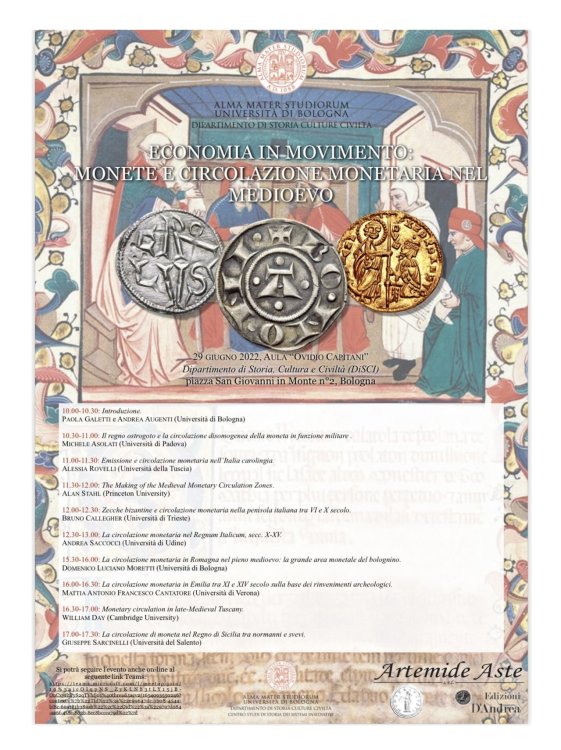 ALMA MATER STUDIORUM
UNIVERSITÀ DI BOLOGNA
DIPARTIMENTO DI STORIA CULTURE CIVILTÀ
ECONOMIA IN MOVIMENTO:
MONETE E CIRCOLAZIONE MONETARIA NEL
MEDIOEVO
29 GIUGNO 2022, AULA "OVIDIO CAPITANI"
Dipartimento di Storia, Cultura e Civiltà (DiSCI)
piazza San Giovanni in Monte n°2, Bologna
10.00-10.30: Introduzione.
PAOLA GALETTI e ANDREA AUGENTI (Università di Bologna)
10.30-11.00: Il regno ostrogoto e la circolazione disomogenea della moneta in funzione militare
MICHELE ASOLATI (Università di Padova)
11.00-11.30: Emissione e circolazione monetaria nell'Italia carolingia.
ALESSIA ROVELLI (Università della Tuscia)
11.30-12.00: The Making of the Medieval Monetary Circulation Zones.
ALAN STAHL (Princeton University)
12.00-12.30: Zecche bizantine e circolazione monetaria nella penisola italiana tra VI e X secolo.
BRUNO CALLEGHER (Università di Trieste)
12.30-13.00: La circolazione monetaria nel Regnum Italicum, secc. X-XV.
ANDREA SACCOCCI (Università di Udine)
15.30-16.00: La circolazione monetaria in Romagna nel pieno medioevo: la grande area monetale del bolognino.
DOMENICO LUCIANO MORETTI (Università di Bologna)
16.00-16.30: La circolazione monetaria in Emilia tra XI e XIV secolo sulla base dei rinvenimenti archeologici.
MATTIA ANTONIO FRANCESCO CANTATORE (Università di Verona)
16.30-17.00: Monetary circulation in late-Medieval Tuscany.
WILLIAM DAY (Cambridge University)
17.00-17.30: La circolazione di moneta nel Regno di Sicilia tra normanni e svevi.
GIUSEPPE SARCINELLI (Università del Salento)
Si potrà seguire l'evento anche on-line al
seguente link Teams:
Artemide Aste
ALMA MATER STUDIORUM
UNIVERSITÀ DI BOLOGNA
DIPARTIMENTO DI STORIA CULTURE CIVILTÀ
Edizioni
D'Andrea